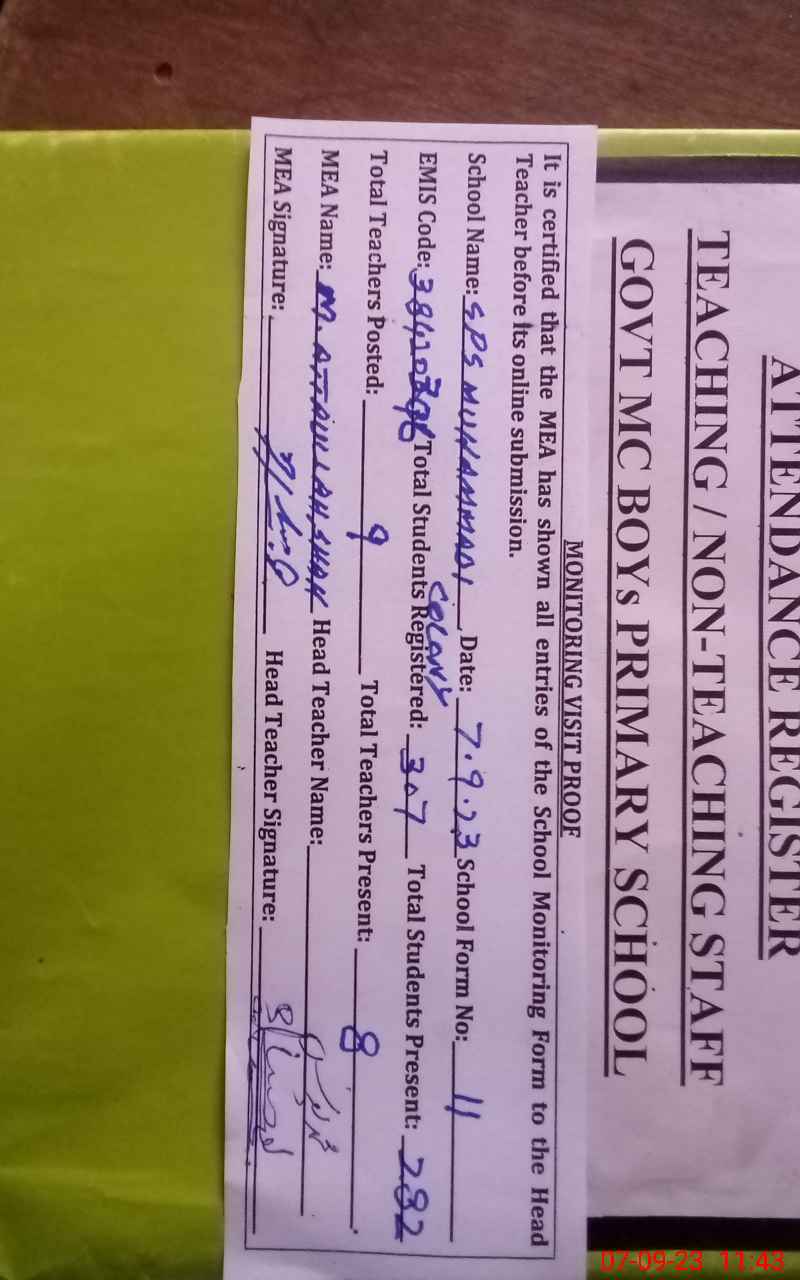 ATTENDANCE REGISTER
TEACHING / NON-TEACHING STAFF
GOVT MC BOYs PRIMARY SCHOOL
MONITORING VISIT PROOF
It is certified that the MEA has shown all entries of the School Monitoring Form to the Head
Teacher before its online submission.
School Name: SPS MUHAMMADI COLONY Date: 7.9.23 School Form No: 11
EMIS Code: Total Students Registered: 307 Total Students Present: 282
Total Teachers Posted: 9 Total Teachers Present: 8
MEA Name: M. ATTAULLAH SHAH Head Teacher Name:
MEA Signature: Head Teacher Signature:
07-09-23 11:43